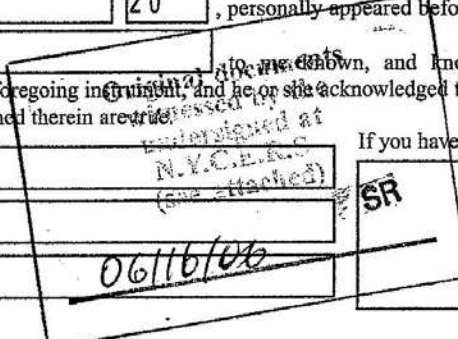 20 , personally appeared befo
to me known, and kno
foregoing instrument, and he or she acknowledged t
ned therein are true.
Original documents
witnessed by the
undersigned at
N.Y.C.E.R.S
(see attached)
If you have
SR
06/16/06